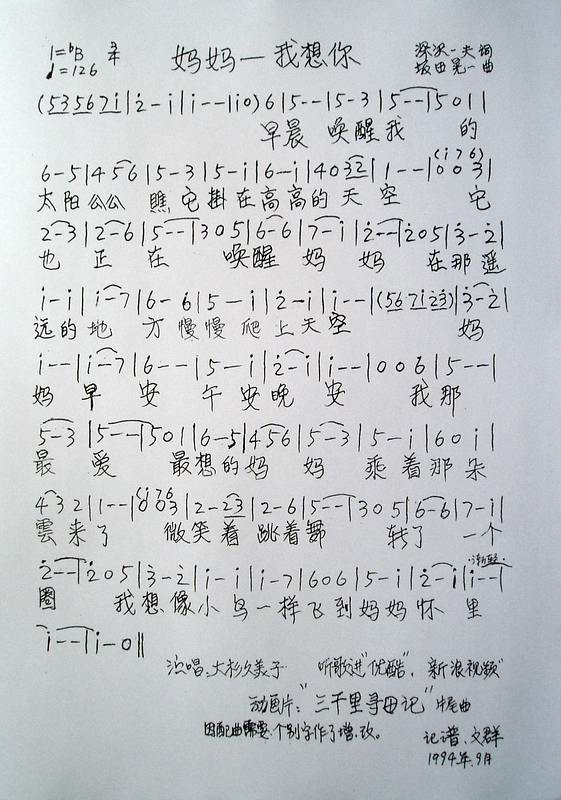 1=♭B 3/4 妈妈—我想你 深沢一夫 词
♩=126 坂田晃一 曲
(5 3 5 6 7 i|2̇-i|i--|i0)6|5--|5-3|5--|501|
早晨 唤醒我 的
6-5|456|5-3|5-i|6-i|4032|1--|(i76)003|
太阳公公 瞧它掛在高高的天空 它
2-3|2-6|5--|305|6-6|7-i|2̇--|2̇05|3̇-2̇|
也 正 在 唤醒 妈 妈 在那遥
i-i|i-7|6-6|5-i|2̇-i|i--|(567i2̇3̇)|3̇-2̇|
远的地 方慢慢爬上天空 妈
i--|i-7|6--|5-i|2̇-i|i--|006|5--|
妈 早 安 午安晚 安 我那
5-3|5--|501|6-5|456|5-3|5-i|60i|
最 爱 最想的妈 妈 乘着那朵
432|1--|(i76)003|2-23|2-6|5--|305|6-6|7-i|
雲来了 微笑着跳着舞 转了 一个
2̇--|2̇05|3̇-2̇|i-i|i-7|606|5-i|2̇-i|渐轻i--|
圈 我想像小鸟一样飞到妈妈怀 里
i--|i-0‖
演唱:大杉久美子 听歌进"优酷",新浪视频"
动画片:"三千里寻母记"片尾曲
因配曲需要,个别字作了增、改。
记谱、文群
1994年.9月